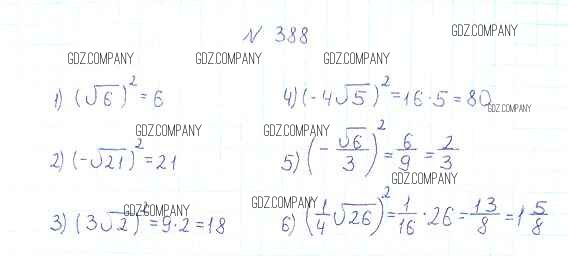 N 388
GDZ.COMPANY
GDZ.COMPANY GDZ.COMPANY GDZ.COMPANY
1) (√6)² = 6
4) (-4√5)² = 16 · 5 = 80
GDZ.COMPANY
GDZ.COMPANY GDZ.COMPANY
2) (-√21)² = 21
5) (-√6/3)² = 6/9 = 2/3
GDZ.COMPANY
GDZ.COMPANY GDZ.COMPANY
3) (3√2)² = 9 · 2 = 18
6) (1/4 √26)² = 1/16 · 26 = 13/8 = 1 5/8